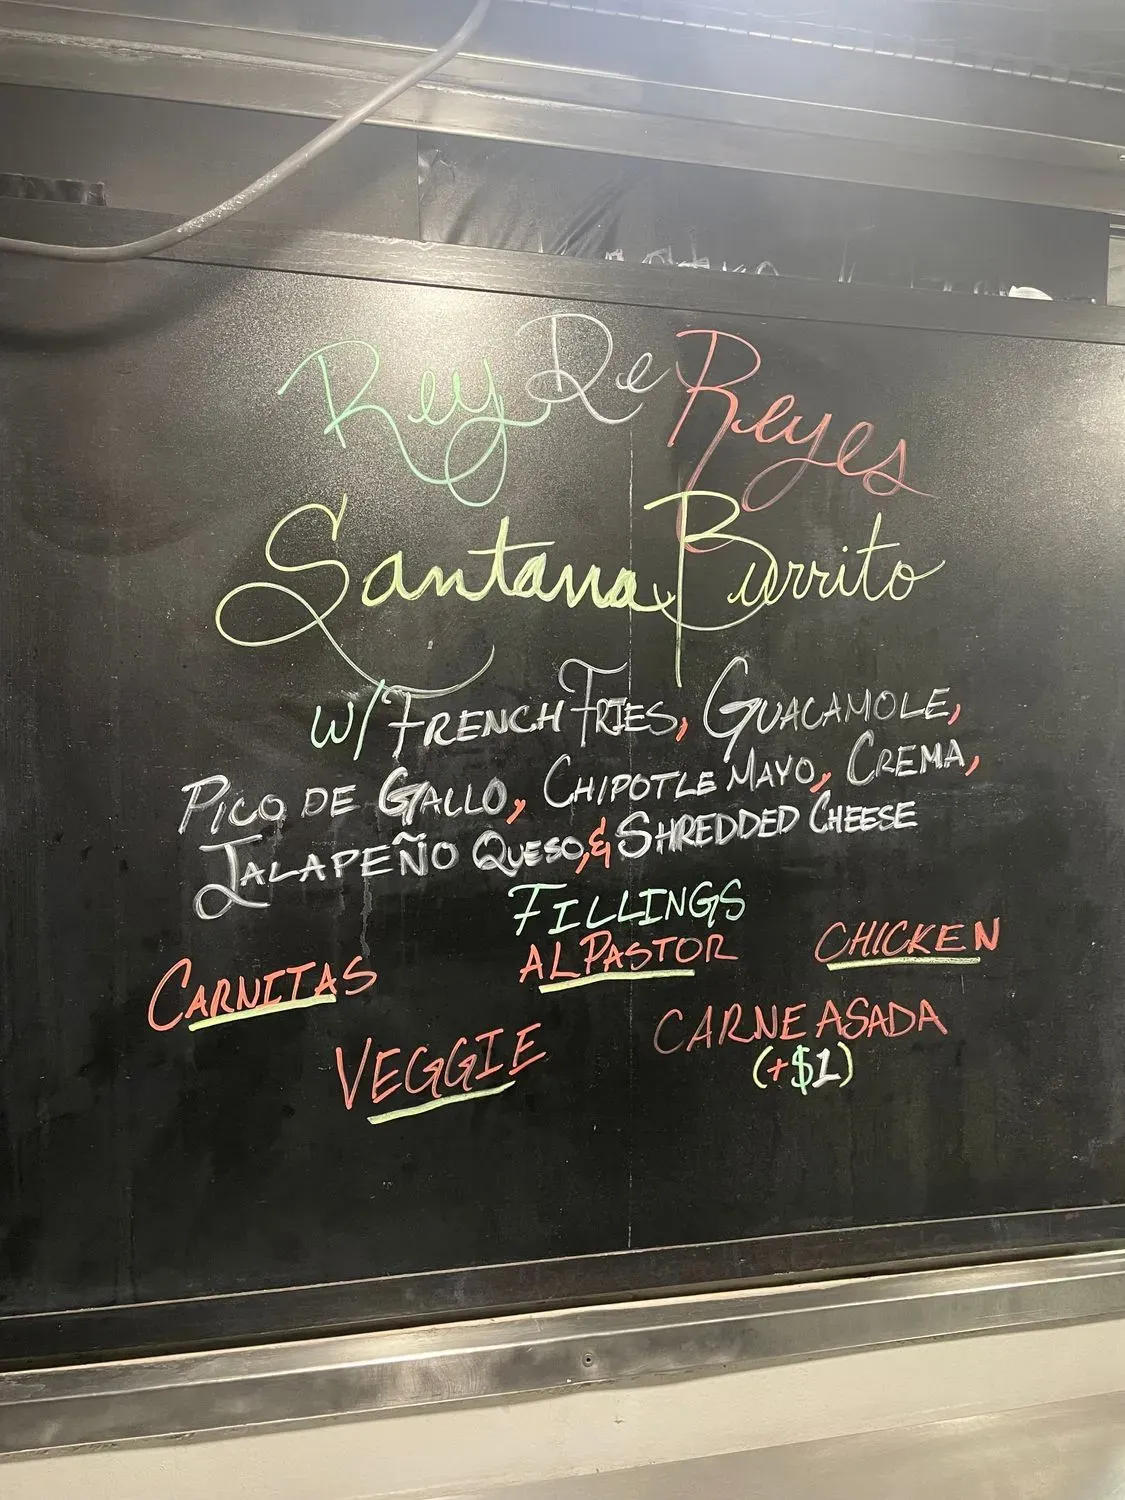 Rey De Reyes
Santana Burrito
W/ FRENCH FRIES, GUACAMOLE,
PICO DE GALLO, CHIPOTLE MAYO, CREMA,
JALAPEÑO QUESO, & SHREDDED CHEESE
FILLINGS
CARNITAS AL PASTOR CHICKEN
VEGGIE CARNE ASADA
(+$1)